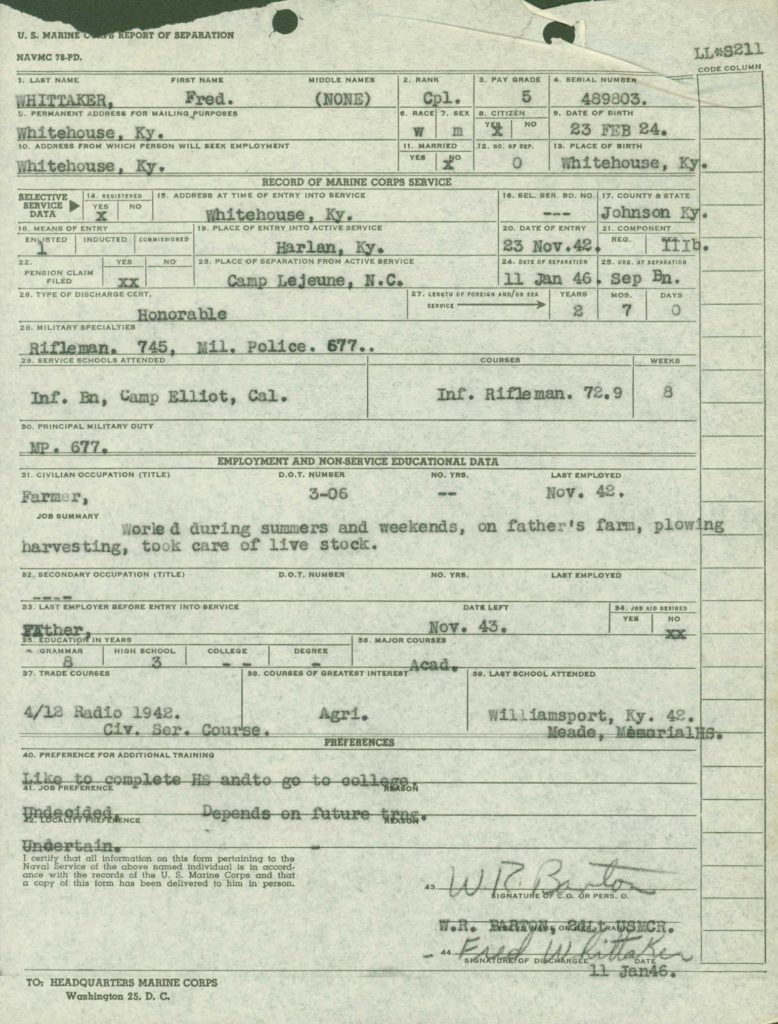 U. S. MARINE CORPS REPORT OF SEPARATION
NAVMC 78-PD.
LL#S211
CODE COLUMN
1. LAST NAME FIRST NAME MIDDLE NAMES 2. RANK 3. PAY GRADE 4. SERIAL NUMBER
WHITTAKER, Fred. (NONE) Cpl. 5 489803.
5. PERMANENT ADDRESS FOR MAILING PURPOSES 6. RACE 7. SEX 8. CITIZEN 9. DATE OF BIRTH
YES NO
Whitehouse, Ky. W m X 23 FEB 24.
10. ADDRESS FROM WHICH PERSON WILL SEEK EMPLOYMENT 11. MARRIED 12. NO. OF DEP. 13. PLACE OF BIRTH
YES NO
Whitehouse, Ky. X 0 Whitehouse, Ky.
RECORD OF MARINE CORPS SERVICE
SELECTIVE SERVICE DATA 14. REGISTERED 15. ADDRESS AT TIME OF ENTRY INTO SERVICE 16. SEL. SER. BD. NO. 17. COUNTY & STATE
YES NO
X Whitehouse, Ky. --- Johnson Ky.
18. MEANS OF ENTRY 19. PLACE OF ENTRY INTO ACTIVE SERVICE 20. DATE OF ENTRY 21. COMPONENT
ENLISTED INDUCTED COMMISSIONED REG. RES.
1 Harlan, Ky. 23 Nov.42. IIIb.
22. YES NO 23. PLACE OF SEPARATION FROM ACTIVE SERVICE 24. DATE OF SEPARATION 25. ORG. AT SEPARATION
PENSION CLAIM FILED XX Camp Lejeune, N.C. 11 Jan 46. Sep Bn.
26. TYPE OF DISCHARGE CERT. 27. LENGTH OF FOREIGN AND/OR SEA SERVICE YEARS MOS. DAYS
Honorable 2 7 0
28. MILITARY SPECIALTIES
Rifleman. 745, Mil. Police. 677..
29. SERVICE SCHOOLS ATTENDED COURSES WEEKS
Inf. Bn, Camp Elliot, Cal. Inf. Rifleman. 72.9 8
30. PRINCIPAL MILITARY DUTY
MP. 677.
EMPLOYMENT AND NON-SERVICE EDUCATIONAL DATA
31. CIVILIAN OCCUPATION (TITLE) D.O.T. NUMBER NO. YRS. LAST EMPLOYED
Farmer, 3-06 -- Nov. 42.
JOB SUMMARY
Worle d during summers and weekends, on father's farm, plowing
harvesting, took care of live stock.
32. SECONDARY OCCUPATION (TITLE) D.O.T. NUMBER NO. YRS. LAST EMPLOYED
----
33. LAST EMPLOYER BEFORE ENTRY INTO SERVICE DATE LEFT 34. JOB AID DESIRED
YES NO
FAther, Nov. 43. XX
35. EDUCATION IN YEARS 36. MAJOR COURSES
GRAMMAR HIGH SCHOOL COLLEGE DEGREE
8 3 -- - Acad.
37. TRADE COURSES 38. COURSES OF GREATEST INTEREST 39. LAST SCHOOL ATTENDED
4/12 Radio 1942. Agri. Williamsport, Ky. 42.
Civ. Ser. Course. Meade, MemorialHS.
PREFERENCES
40. PREFERENCE FOR ADDITIONAL TRAINING
Like to complete HS andto go to college.
41. JOB PREFERENCE REASON
Undecided. Depends on future trng.
42. LOCALITY PREFERENCE REASON
Undertain. -
I certify that all information on this form pertaining to the
Naval Service of the above named individual is in accord-
ance with the records of the U. S. Marine Corps and that
a copy of this form has been delivered to him in person.
43. W. R. Barton
SIGNATURE OF C.O. OR PERS. O.
W.R. BARTON, 2dLt USMCR.
44. Fred Whittaker
SIGNATURE OF DISCHARGEE DATE
11 Jan46.
TO: HEADQUARTERS MARINE CORPS
Washington 25, D. C.